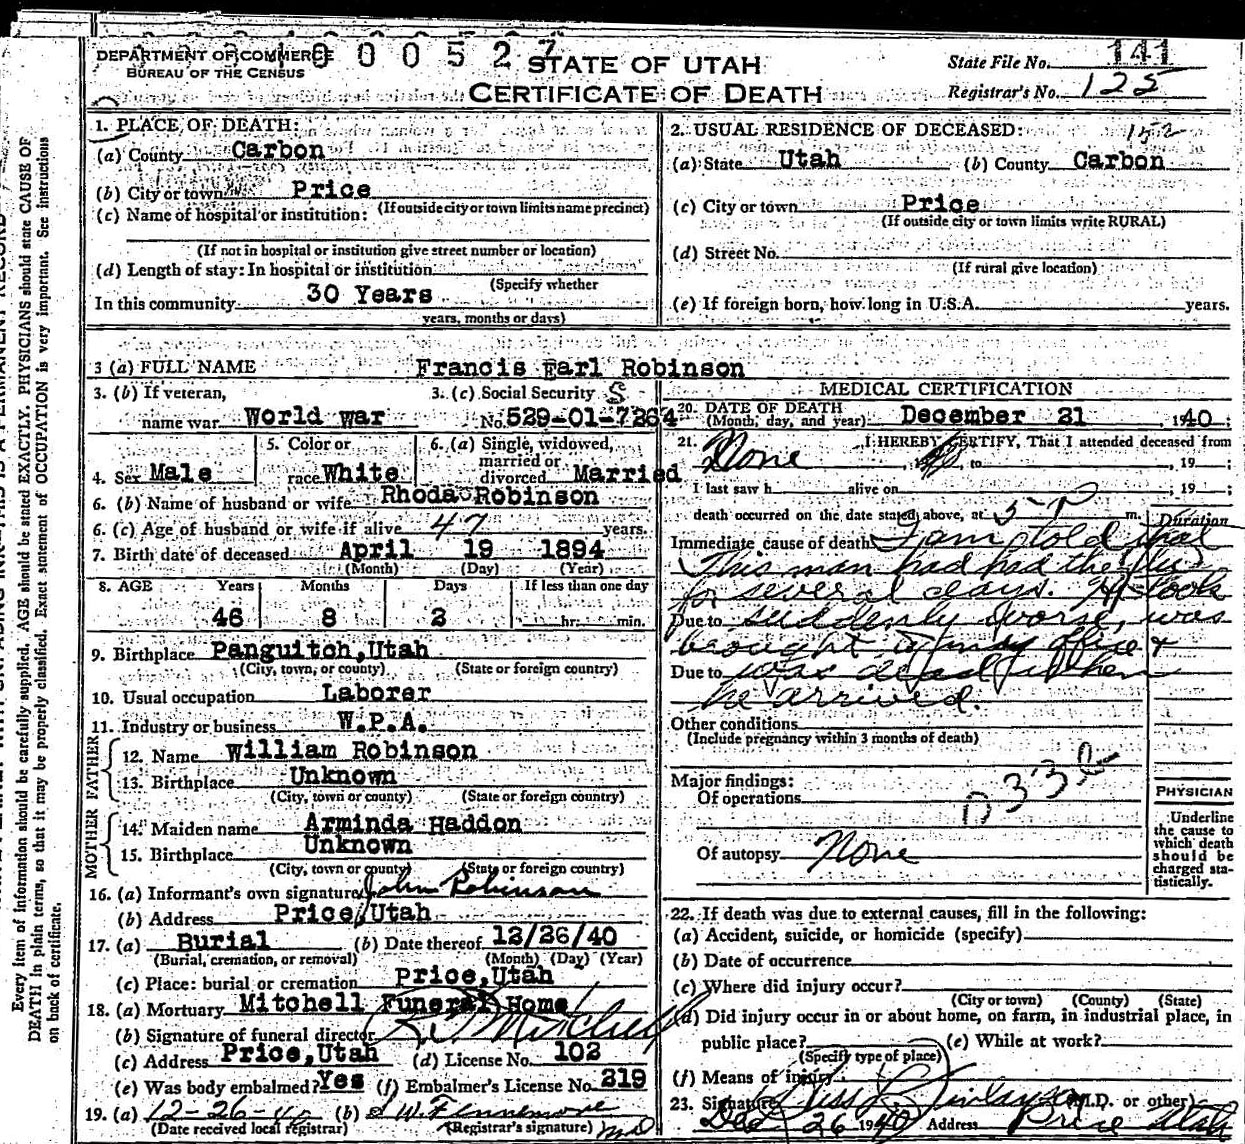 DEPARTMENT OF COMMERCE
BUREAU OF THE CENSUS
0 0 0 5 2 7
STATE OF UTAH
CERTIFICATE OF DEATH
State File No. 141
Registrar's No. 125
1. PLACE OF DEATH:
(a) County Carbon
(b) City or town Price
(If outside city or town limits name precinct)
(c) Name of hospital or institution:
(If not in hospital or institution give street number or location)
(d) Length of stay: In hospital or institution
(Specify whether
In this community 30 Years
years, months or days)
2. USUAL RESIDENCE OF DECEASED: 152
(a) State Utah (b) County Carbon
(c) City or town Price
(If outside city or town limits write RURAL)
(d) Street No.
(If rural give location)
(e) If foreign born, how long in U.S.A. years.
3 (a) FULL NAME Francis Earl Robinson
3. (b) If veteran, 3. (c) Social Security S
name war World war No. 529-01-7264
4. Sex Male 5. Color or race White 6. (a) Single, widowed, married or divorced Married
6. (b) Name of husband or wife Rhoda Robinson
6. (c) Age of husband or wife if alive 47 years.
7. Birth date of deceased April 19 1894
(Month) (Day) (Year)
8. AGE Years Months Days If less than one day
46 8 2 hr. min.
9. Birthplace Panguitch, Utah
(City, town, or county) (State or foreign country)
10. Usual occupation Laborer
11. Industry or business W.P.A.
FATHER
12. Name William Robinson
13. Birthplace Unknown
(City, town or county) (State or foreign country)
MOTHER
14. Maiden name Arminda Haddon
15. Birthplace Unknown
(City, town or county) (State or foreign country)
16. (a) Informant's own signature John Robinson
(b) Address Price, Utah
17. (a) Burial (b) Date thereof 12/26/40
(Burial, cremation, or removal) (Month) (Day) (Year)
(c) Place: burial or cremation Price, Utah
18. (a) Mortuary Mitchell Funeral Home
(b) Signature of funeral director Mitchell
(c) Address Price, Utah (d) License No. 102
(e) Was body embalmed? Yes (f) Embalmer's License No. 219
19. (a) 12-26-40 (b) W. Fennemore MD
(Date received local registrar) (Registrar's signature)
MEDICAL CERTIFICATION
20. DATE OF DEATH
(Month, day, and year) December 21 1940;
21. I HEREBY CERTIFY, That I attended deceased from
None , 19 to , 19 ;
I last saw h alive on , 19 ;
death occurred on the date stated above, at 5-P m.
Duration
Immediate cause of death I am told that
This man had had the flu
for several days. He took
Due to suddenly worse, was
brought to my office &
Due to was dead when
he arrived.
Other conditions
(Include pregnancy within 3 months of death)
Major findings:
Of operations
33b
Of autopsy None
PHYSICIAN
Underline
the cause to
which death
should be
charged sta-
tistically.
22. If death was due to external causes, fill in the following:
(a) Accident, suicide, or homicide (specify)
(b) Date of occurrence
(c) Where did injury occur?
(City or town) (County) (State)
(d) Did injury occur in or about home, on farm, in industrial place, in
public place? (e) While at work?
(Specify type of place)
(f) Means of injury
23. Signature Finlayson (M.D. or other)
Dec 26 1940 Address Price Utah
Every item of information should be carefully supplied. AGE should be stated EXACTLY. PHYSICIANS should state CAUSE OF
DEATH in plain terms, so that it may be properly classified. Exact statement of OCCUPATION is very important. See instructions
on back of certificate.